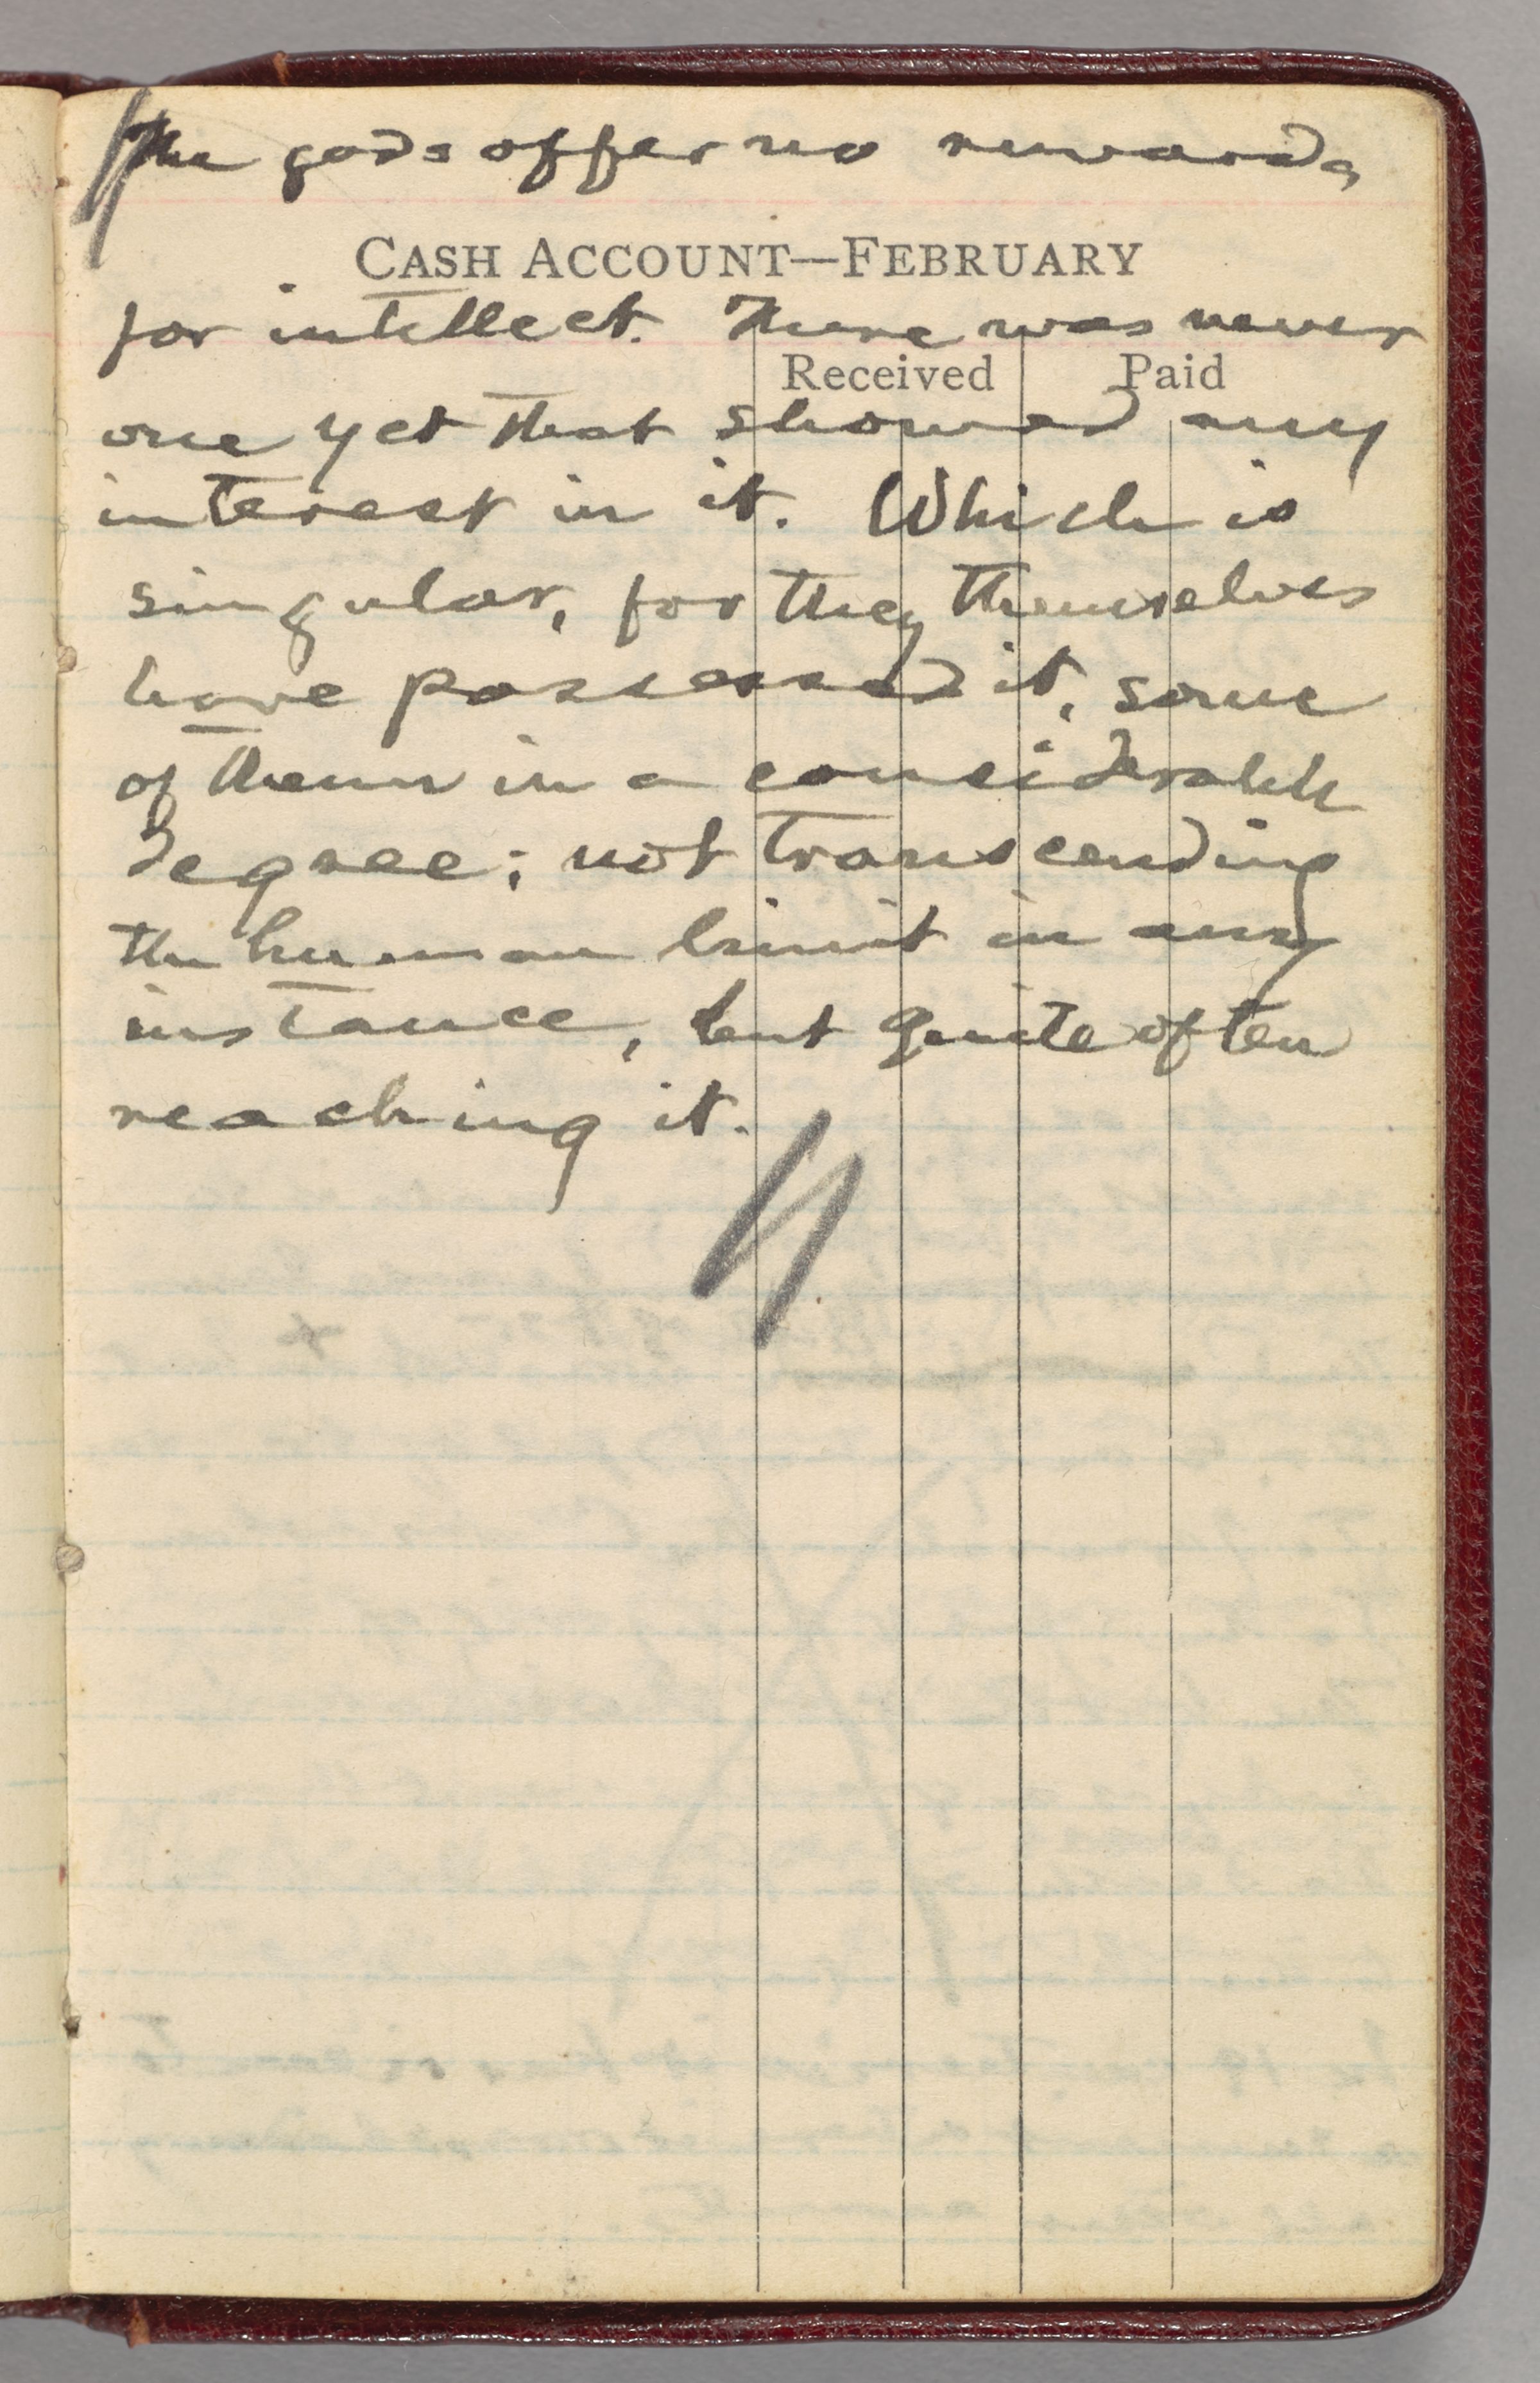 The gods offer no rewards
CASH ACCOUNT—FEBRUARY
for intellect. There was never
Received Paid
one yet that showed any
interest in it. Which is
singular, for they themselves
have possessed it, some
of them in a considerable
degree; not transcending
the human limit in any
instance, but quite often
reaching it.